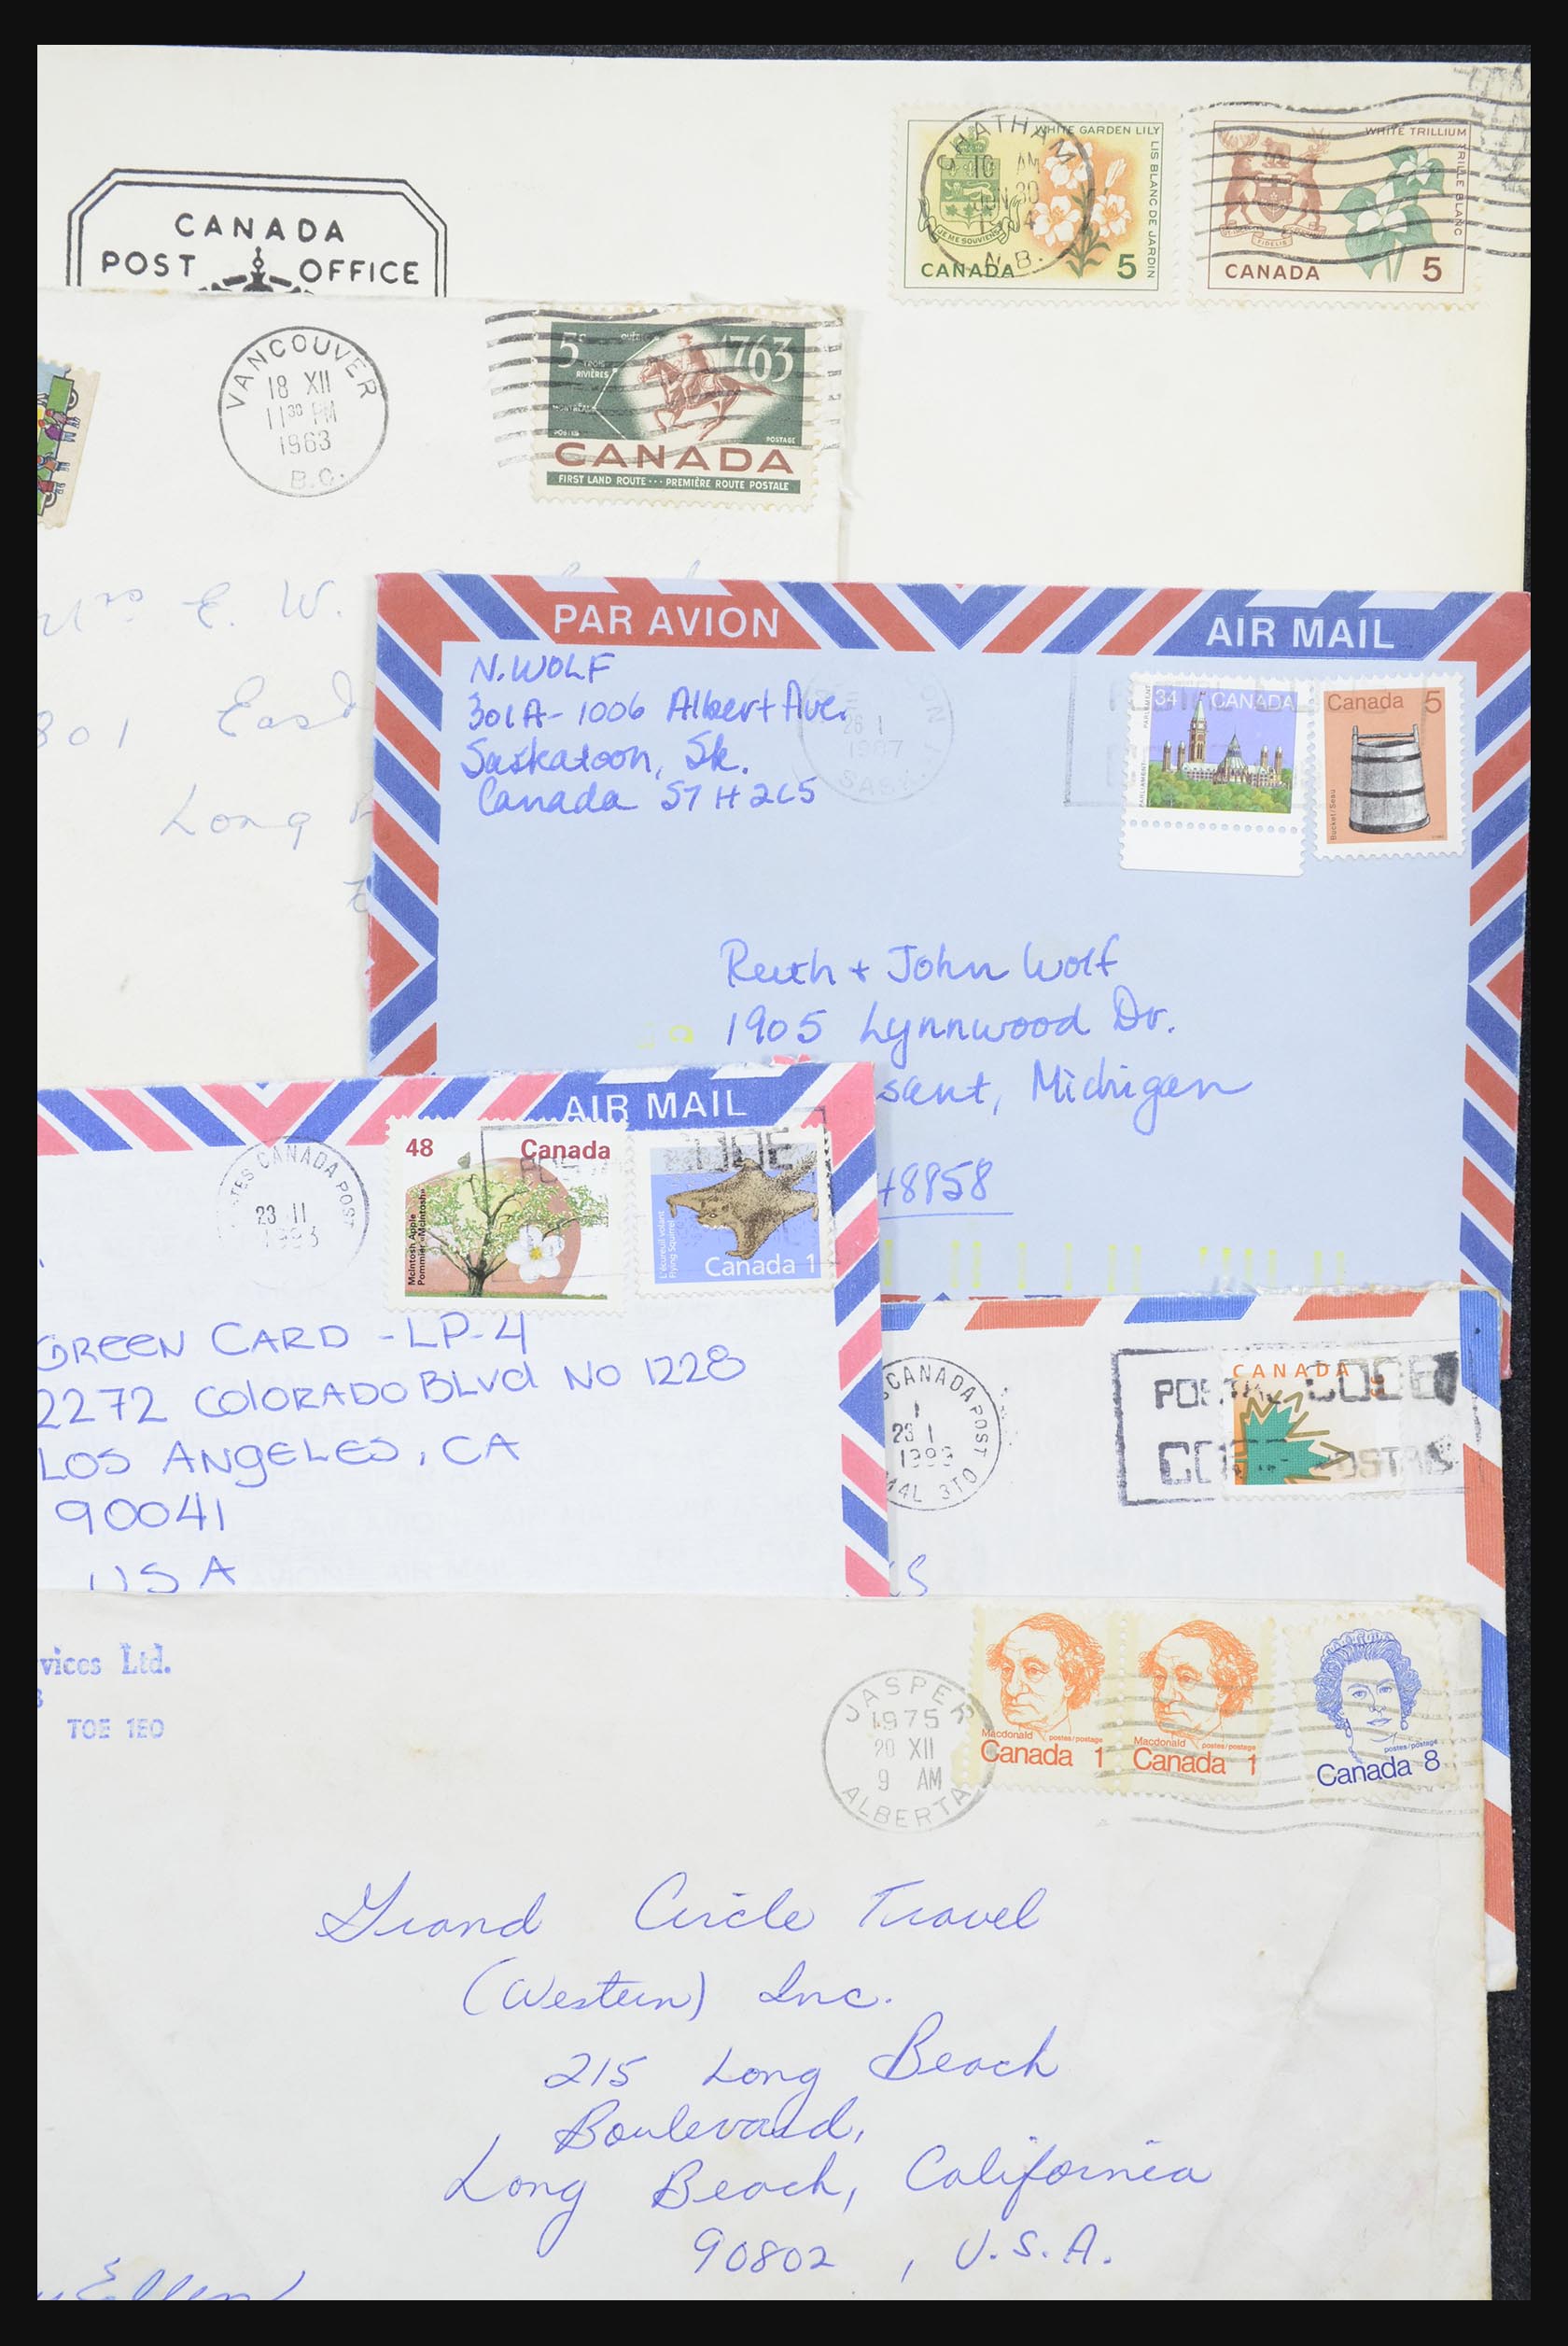 CANADA
POST OFFICE
CHATHAM
10 AM
JUN 30
N.B.
WHITE GARDEN LILY
LIS BLANC DE JARDIN
JE ME SOUVIENS
CANADA 5
WHITE TRILLIUM
TRILLE BLANC
CANADA 5
VANCOUVER
18 XII
11 30 PM
1963
B.C.
5c
QUÉBEC
1763
TROIS
RIVIÈRES
MONTRÉAL
POSTES
POSTAGE
CANADA
FIRST LAND ROUTE ··· PREMIÈRE ROUTE POSTALE
Mrs E. W.
801 East
Long
PAR AVION
AIR MAIL
N. WOLF
301A-1006 Albert Ave.
Saskatoon, Sk.
Canada S7H 2C5
34 CANADA
PARLIAMENT
PARLEMENT
Canada 5
Bucket/Seau
Ruth + John Wolf
1905 Lynnwood Dr.
sant, Michigan
48858
AIR MAIL
TES CANADA POST
23 II
1993
48 Canada
McIntosh Apple
Pommier «McIntosh»
CODE
L'écureuil volant
Flying Squirrel
Canada 1
GREEN CARD - LP-4
2272 COLORADO BLVd NO 1228
LOS ANGELES, CA
90041
USA
CANADA POST
23 I
M4L 3T0
CANADA
POSTAL CODE
CODE POSTAL
vices Ltd.
TOE 1EO
JASPER
1975
20 XII
9 AM
ALBERTA
Macdonald postes/postage
Canada 1
Macdonald postes/postage
Canada 1
postes/postage
Canada 8
Grand Circle Travel
(Western) Inc.
215 Long Beach
Boulevard,
Long Beach, California
90802, U.S.A.